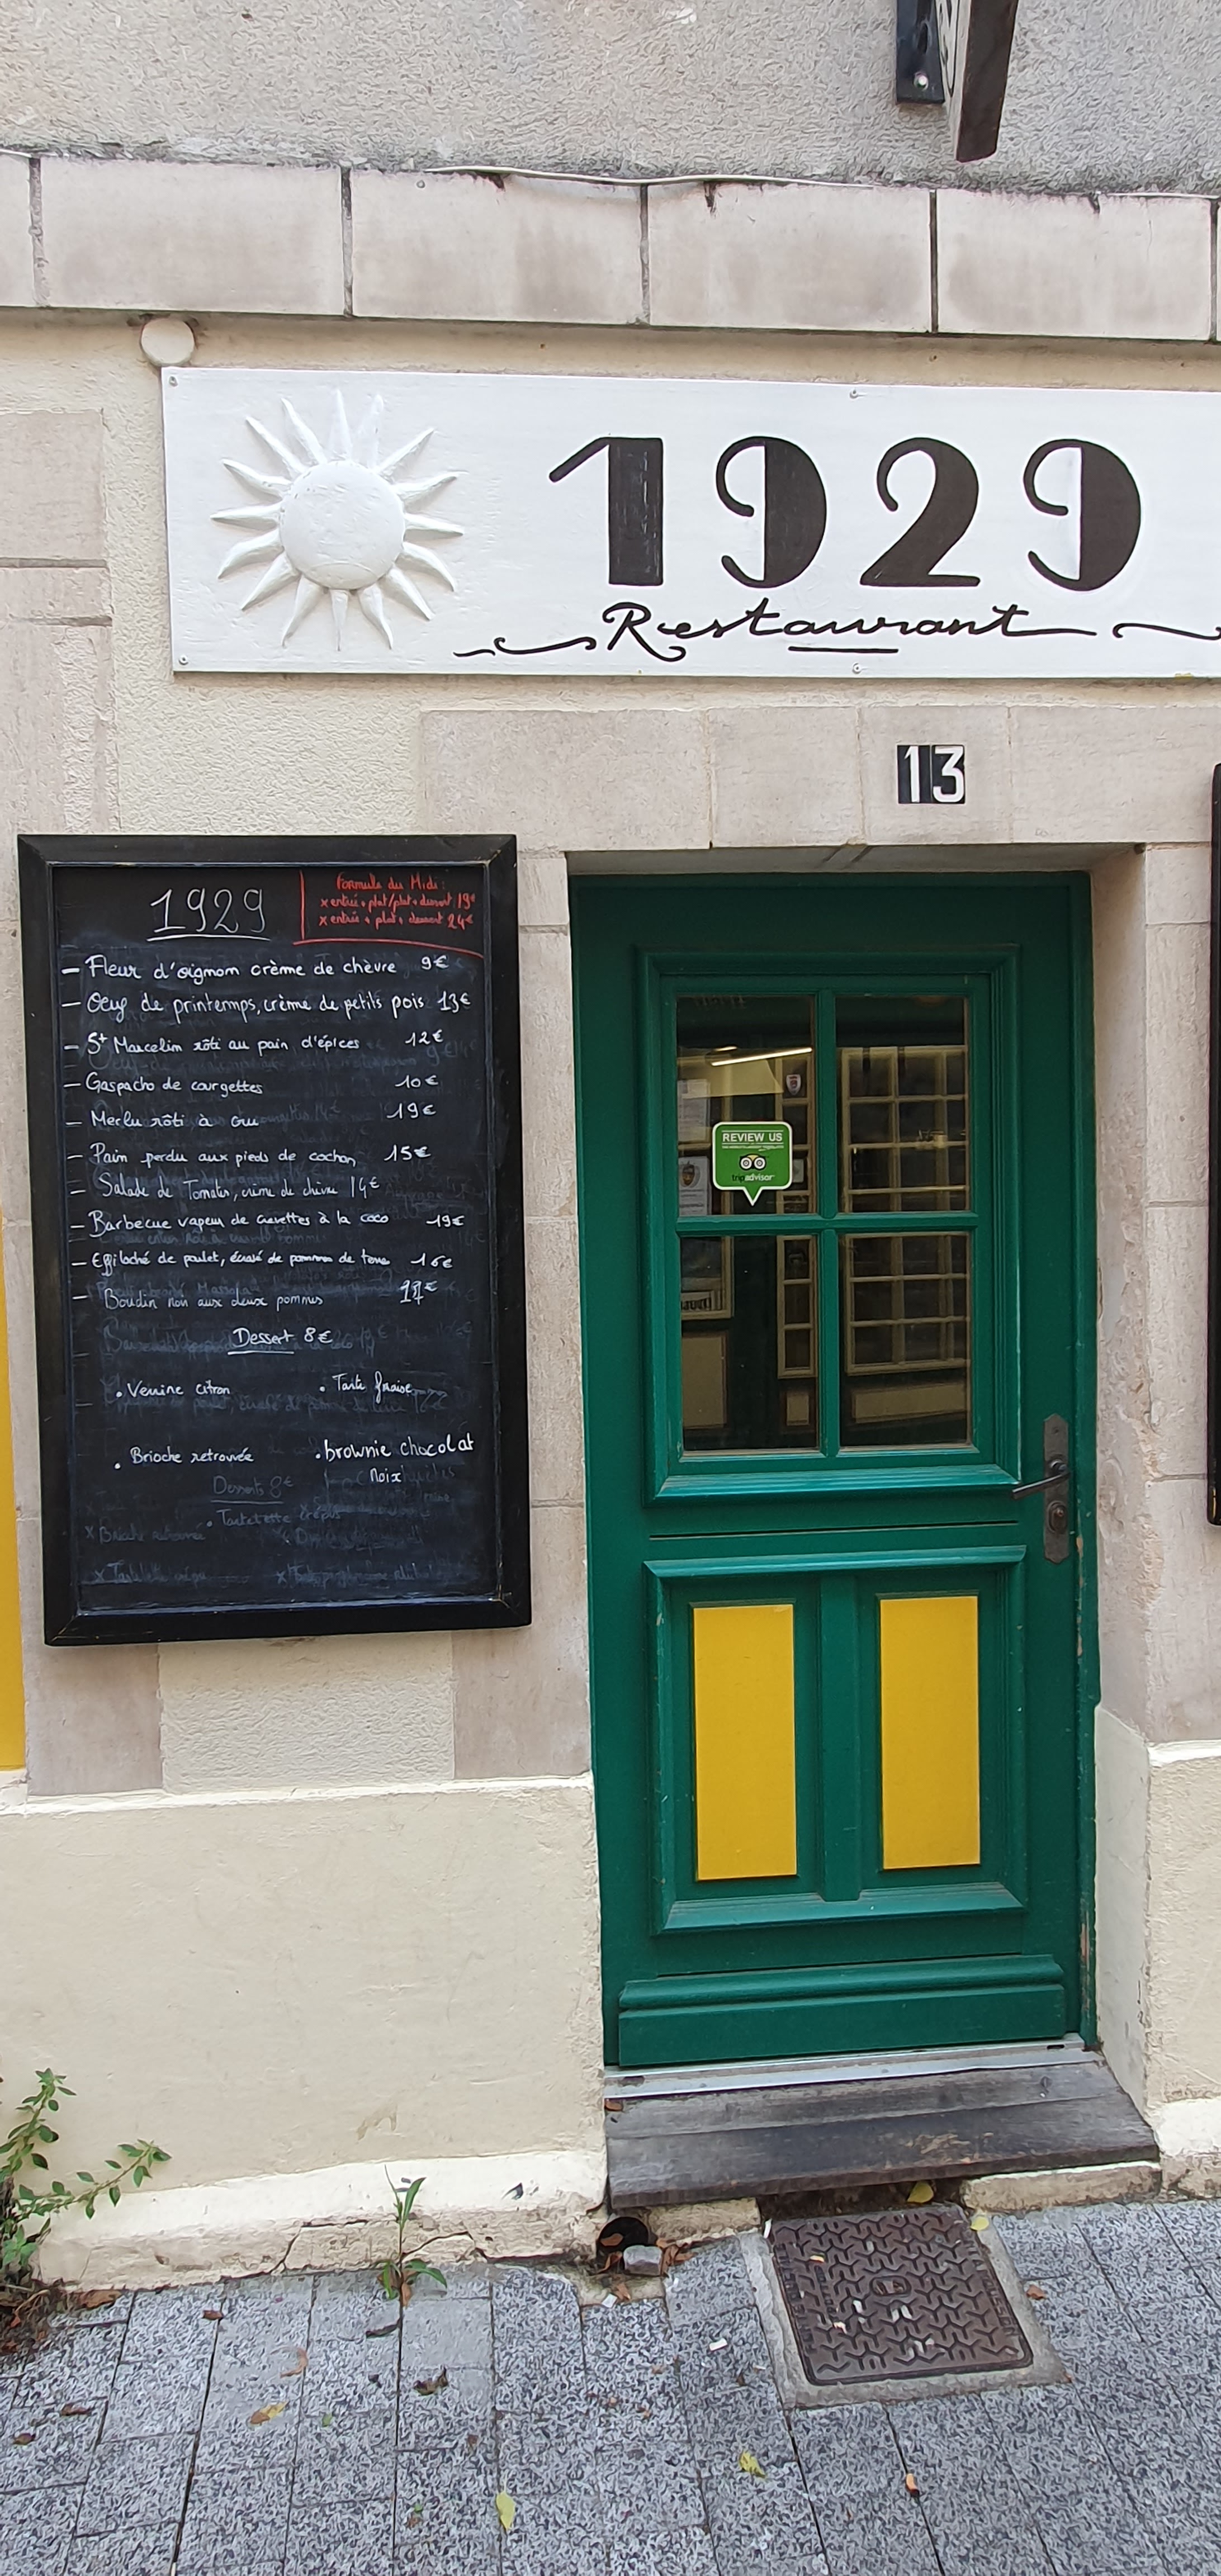 1929
Restaurant
13
1929
Formule du Midi:
x entrée + plat/plat + dessert 19€
x entrée + plat + dessert 24€
- Fleur d'oignom crème de chèvre 9€
- Oeuf de printemps, crème de petits pois 13€
- St Marcelin rôti au pain d'épices 12€
- Gaspacho de courgettes 10€
- Merlu rôti à cru 19€
- Pain perdu aux pieds de cochon 15€
- Salade de Tomates, crème de chèvre 14€
- Barbecue vapeur de crevettes à la coco 19€
- Effiloché de poulet, écrasé de pommes de terre 16€
- Boudin noir aux deux pommes
Dessert 8€
• Verrine citron • Tarte fraise
• Brioche retrouvée • brownie chocolat
Noix
Desserts 8€
• Tartelette
x Brioche retrouvée
REVIEW US
tripadvisor